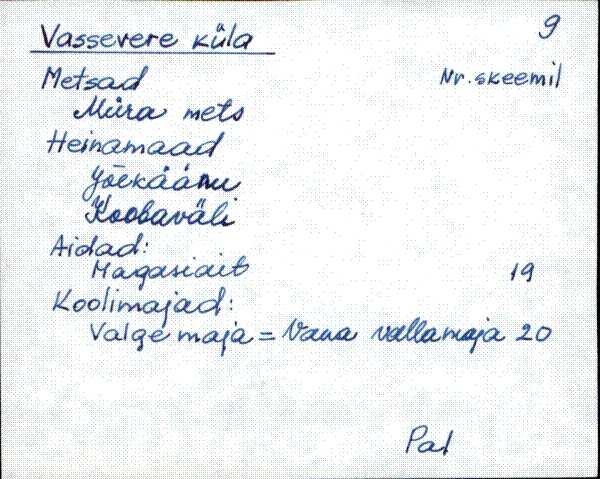 9
Vassevere küla
Metsad Nr. skeemil
Müra mets
Heinamaad
Jõekäänu
Koobaväli
Aidad:
Magasiait 19
Koolimajad:
Valge maja = Vana vallamaja 20
Pal